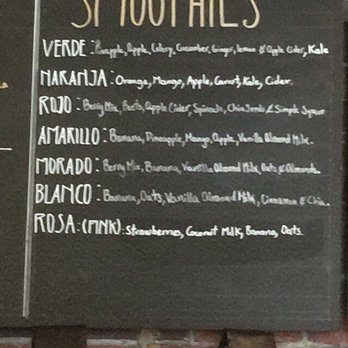 SMOOTHIES
VERDE: Pineapple, Apple, Celery, Cucumber, Ginger, lemon & Apple Cider, Kale
NARANJA: Orange, Mango, Apple, Carrot, Kale, Cider.
ROJO: Berry Mix, Beets, Apple Cider, Spinach, Chia Seeds & Simple Syrup
AMARILLO: Banana, Pineapple, Mango, Apple, Vanilla Almond Milk.
MORADO: Berry Mix, Banana, Vanilla Almond Milk, Oats & Almonds.
BLANCO: Banana, Oats, Vanilla Almond Milk, Cinnamon & Chia.
ROSA: (PINK): Strawberries, Coconut Milk, Banana, Oats.